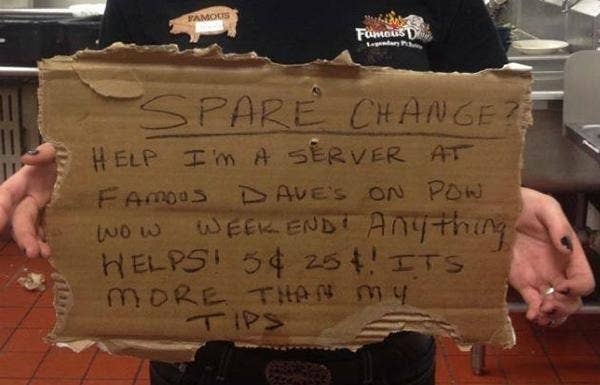 FAMOUS
Famous Dave
Legendary Pit
SPARE CHANGE?
HELP I'm A SERVER AT
FAMOUS DAVE'S ON POW
WOW WEEKEND! Anything
HELPS! 5¢ 25¢! ITS
MORE THAN my
TIPS